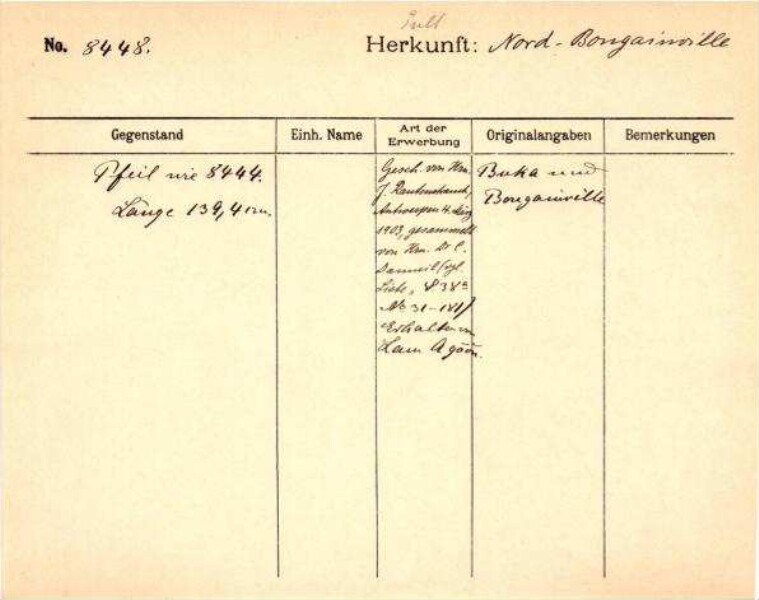 No. 8448.
Herkunft: Nord-Bougainville
Gegenstand
Einh. Name
Art der Erwerbung
Originalangaben
Bemerkungen
Pfeil wie 8444.
Länge 139,4 cm.
Gesch. von Hrn.
J. Rautenstrauch,
Antwerpen 4. März
1903, gesammelt
von Hrn. Dr C.
Danneil (vgl.
Liste,
No 31-181)
Erhalten
Buka und
Bougainville